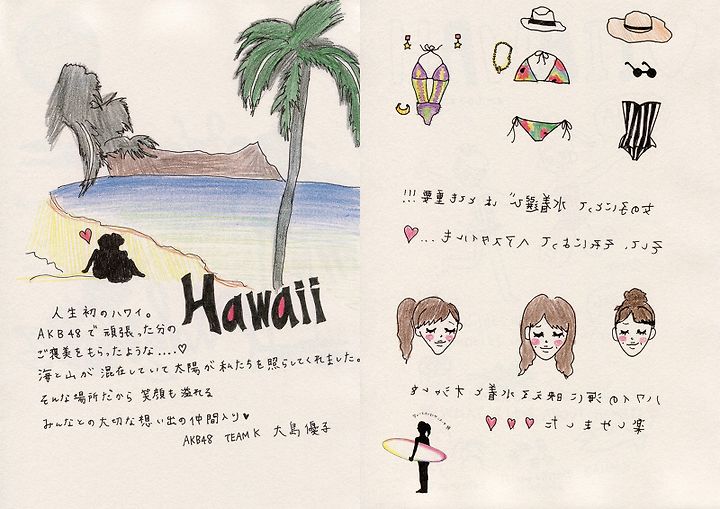 Hawaii
人生初のハワイ。
AKB48で頑張った分の
ご褒美をもらったような....♥
海と山が混在していて太陽が私たちを照らしてくれました。
そんな場所だから笑顔も溢れる
みんなとの大切な想い出の仲間入り♥
AKB48 TEAM K 大島優子
女の子にとって水着選びはとても重要!!!
そして、それによってヘアスタイルも...♥
ハワイの海に映える水着とオシャレを
楽しみました♥♥♥